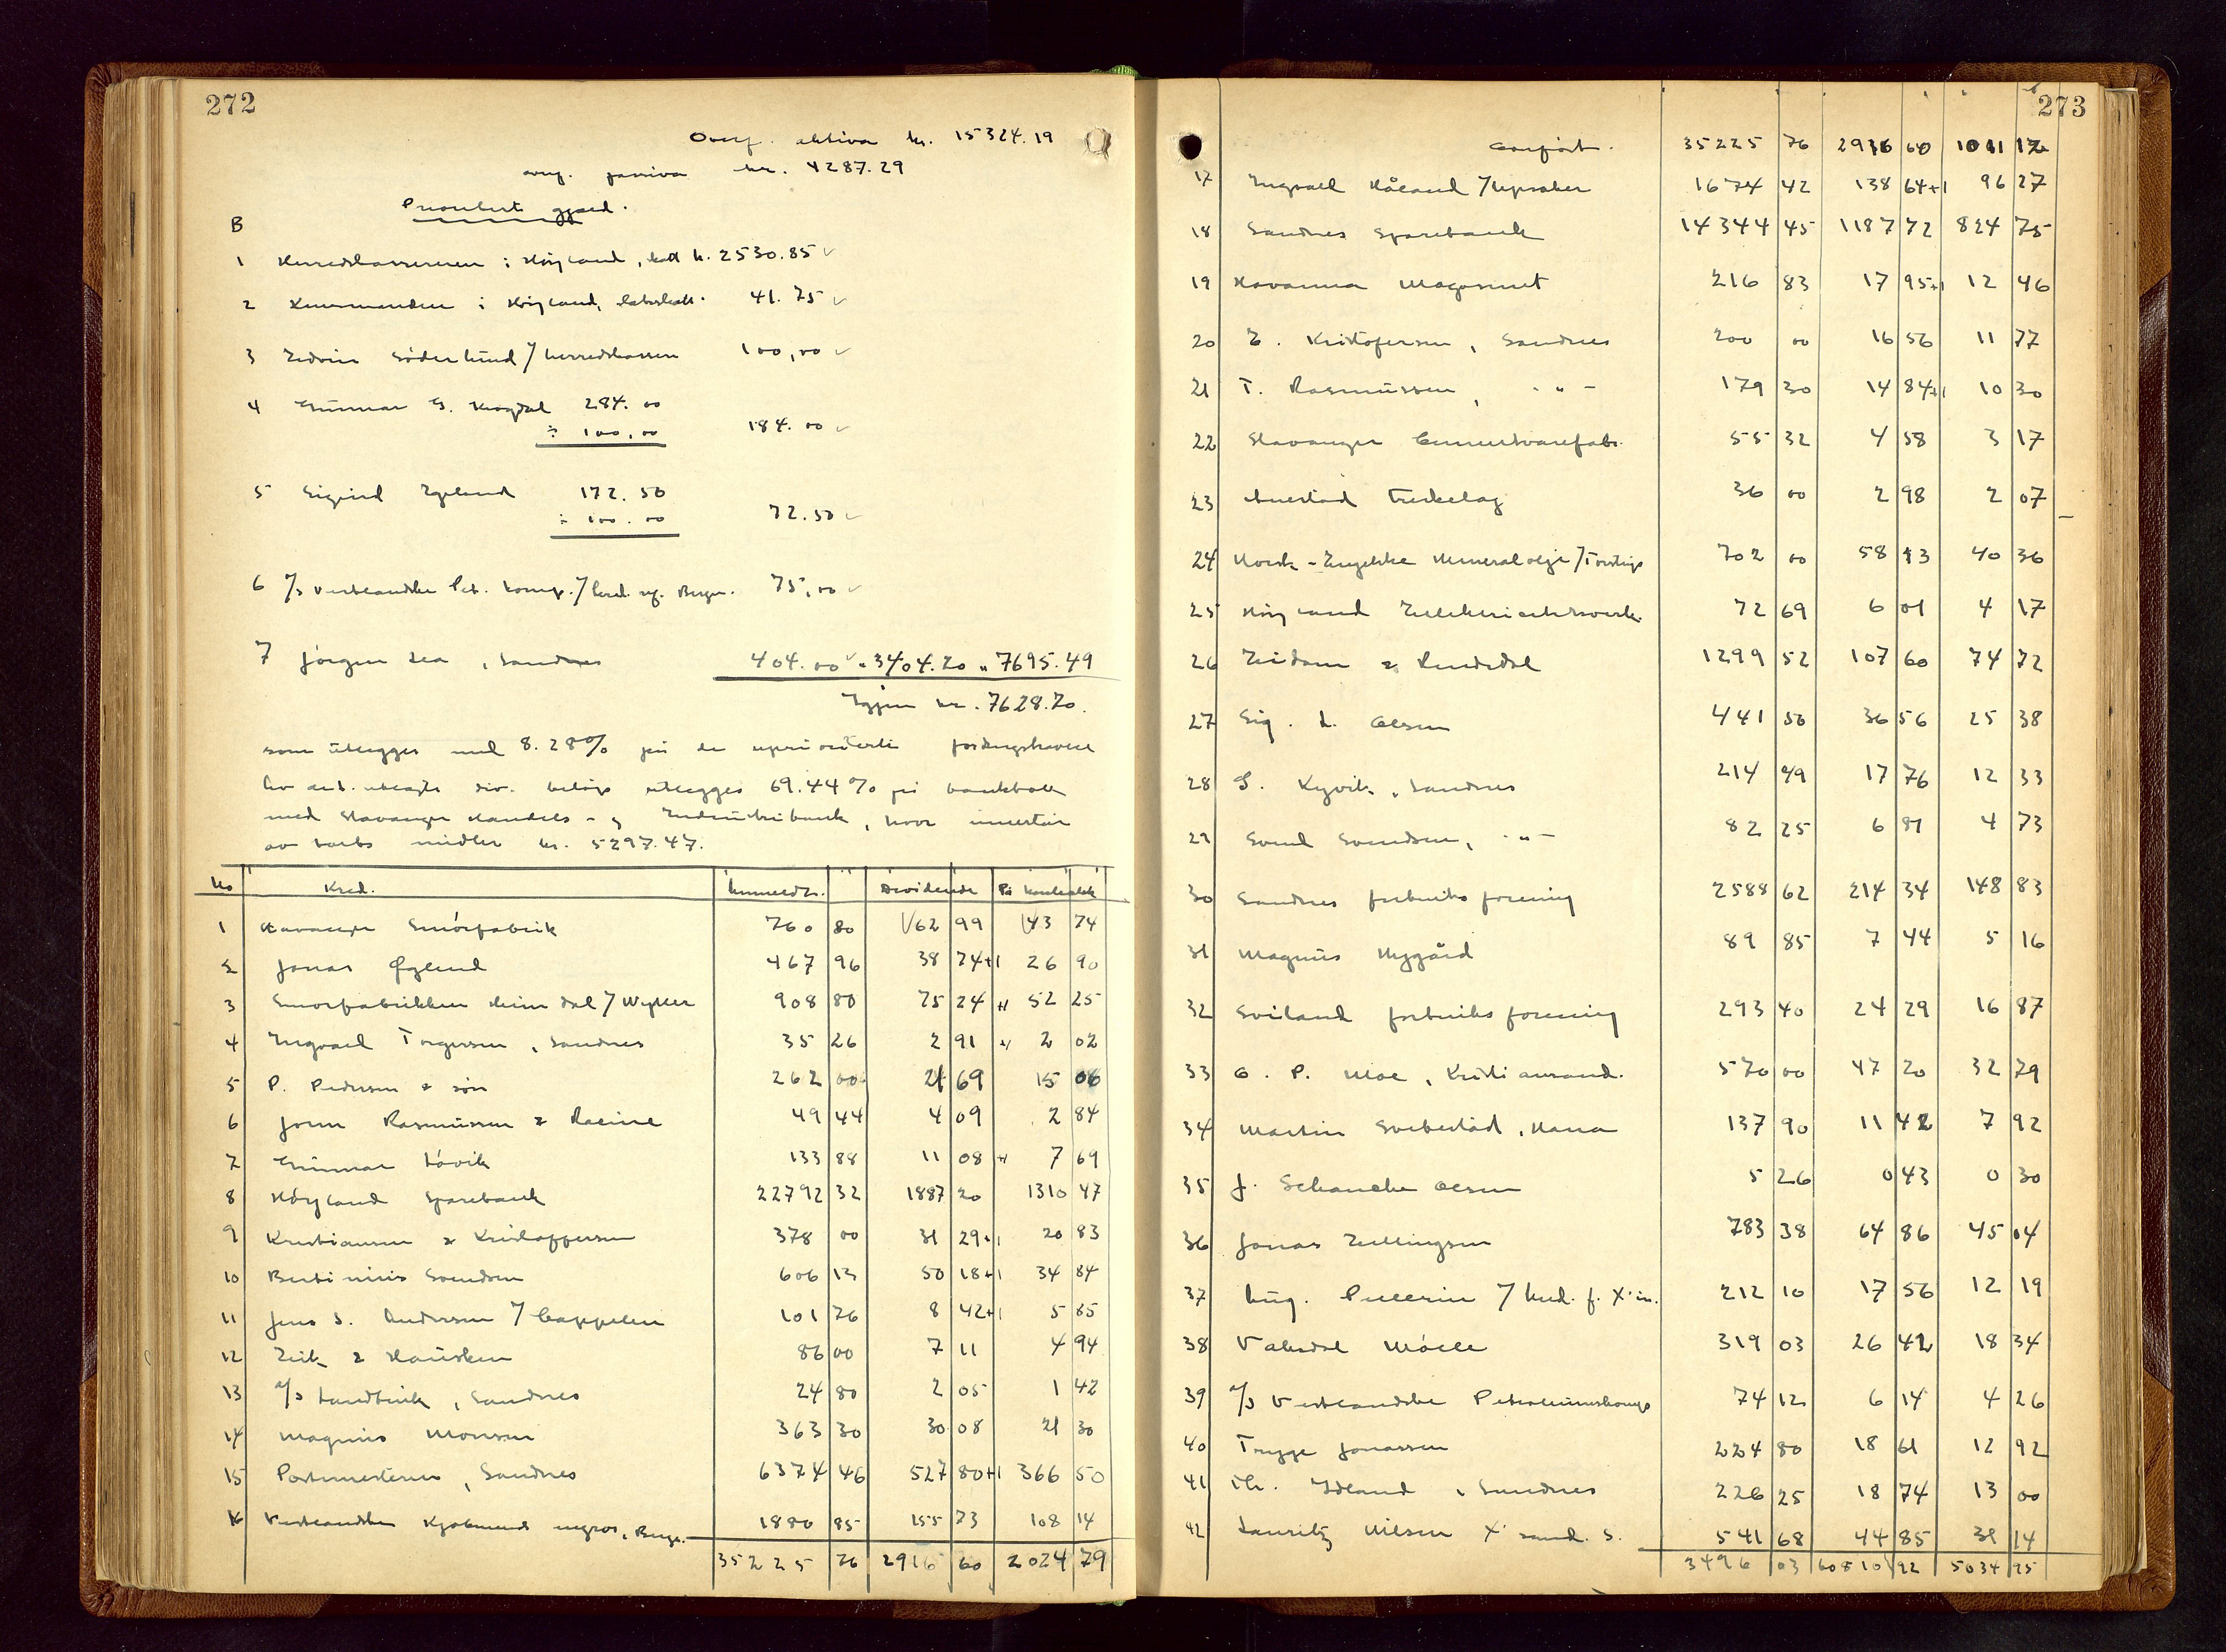 272
Overf. aktiva kr. 15324.19
overf. passiva kr. 4287.29
Prioritert gjæld.
B
1 Herredskassereren i Høyland, skatt kr. 2530.85
2 Lensmanden i Høyland, 41.75
3 Edvin Söderlund / herredskassen 100,00
4 Gunnar G. Hogstad 284.00
÷ 100,00 184.00
5 Sigurd Egeland 172.50
÷ 100.00 72.50
6 A/s Vestlandske Pet. komp. / Bergen. 75,00
7 Jørgen Lea, Sandnes 404.00 " 3404.20 " 7695.49
Igjen kr. 7628.70.
som utlegges med 8.28% på de uprioriterte fordringshavere
Av det utlagte div. beløp utlegges 69.44% på bankbok
med Stavanger Handels- og Industribank, hvor innestår
av boets midler kr. 5297.47.
No Kred. Anmeldt. Dividende På kontrabok
1 Stavanger Smørfabrik 760 80 62 99 43 74
2 Jonas Øglend 467 96 38 74+1 26 90
3 Smørfabrikken Heimdal / Wyller 908 80 75 24 +1 52 25
4 Ingvald Torgersen, Sandnes 35 26 2 91 +1 2 02
5 P. Pedersen & søn 262 00 21 69 15 06
6 John Rasmussen & Racine 49 44 4 09 2 84
7 Gunnar Løvik 133 88 11 08 +1 7 69
8 Høyland Sparebank 22792 32 1887 20 1310 47
9 Kristiansen & Kristoffersen 378 00 31 29+1 20 83
10 Bertinius Svendsen 606 13 50 18+1 34 84
11 Jens S. Andersen / Cappelen 101 76 8 42+1 5 85
12 Eik & Hausken 86 00 7 11 4 94
13 A/s Landbruk, Sandnes 24 80 2 05 1 42
14 Magnus Monsen 363 30 30 08 21 30
15 Postmesteren, Sandnes 6374 46 527 80+1 366 50
16 Vestlandske Kjøbmends engros, Bergen 1880 85 155 73 108 14
35225 76 2916 60 2024 79
273
Overført. 35225 76 2916 60 1011 12
17 Ingvald Håland / Upsaker 1674 42 138 64+1 96 27
18 Sandnes Sparebank 14344 45 1187 72 824 75
19 Havanna Magasinet 216 83 17 95+1 12 46
20 E. Kristofersen, Sandnes 200 00 16 56 11 77
21 T. Rasmussen, - " - 179 30 14 84+1 10 30
22 Stavanger Cementvarefabr. 55 32 4 58 3 17
23 Austad Treskelag 36 00 2 98 2 07
24 Norsk-Engelske Mineralolje / 702 00 58 13 40 36
25 Høyland Elektricitetsverk 72 69 6 01 4 17
26 Eidam & Rendedal 1299 52 107 60 74 72
27 Sig. L. Olsen 441 50 36 56 25 38
28 G. Kyvik, Sandnes 214 49 17 76 12 33
29 Svend Svendsen, - " - 82 25 6 81 4 73
30 Sandnes forbruksforening 2588 62 214 34 148 83
31 Magnus Nygård 89 85 7 44 5 16
32 Sviland forbruksforening 293 40 24 29 16 87
33 O. P. Moe, Kristiansand. 570 00 47 20 32 79
34 Martin Svebestad, Hana 137 90 11 42 7 92
35 J. Schanche Olsen 5 26 0 43 0 30
36 Jonas Ellingsen 783 38 64 86 45 04
37 Aug. Pellerin / Med. f. X'ia. 212 10 17 56 12 19
38 Vaksdal Mølle 319 03 26 42 18 34
39 A/s Vestlandske Petroleumskomp 74 12 6 14 4 26
40 Trygve Jonassen 224 80 18 61 12 92
41 Th. Ydland, Sandnes 226 25 18 74 13 00
42 Lauritz Nilsen X sand. S. 541 68 44 85 31 14
3496 03 60810 92 5034 95